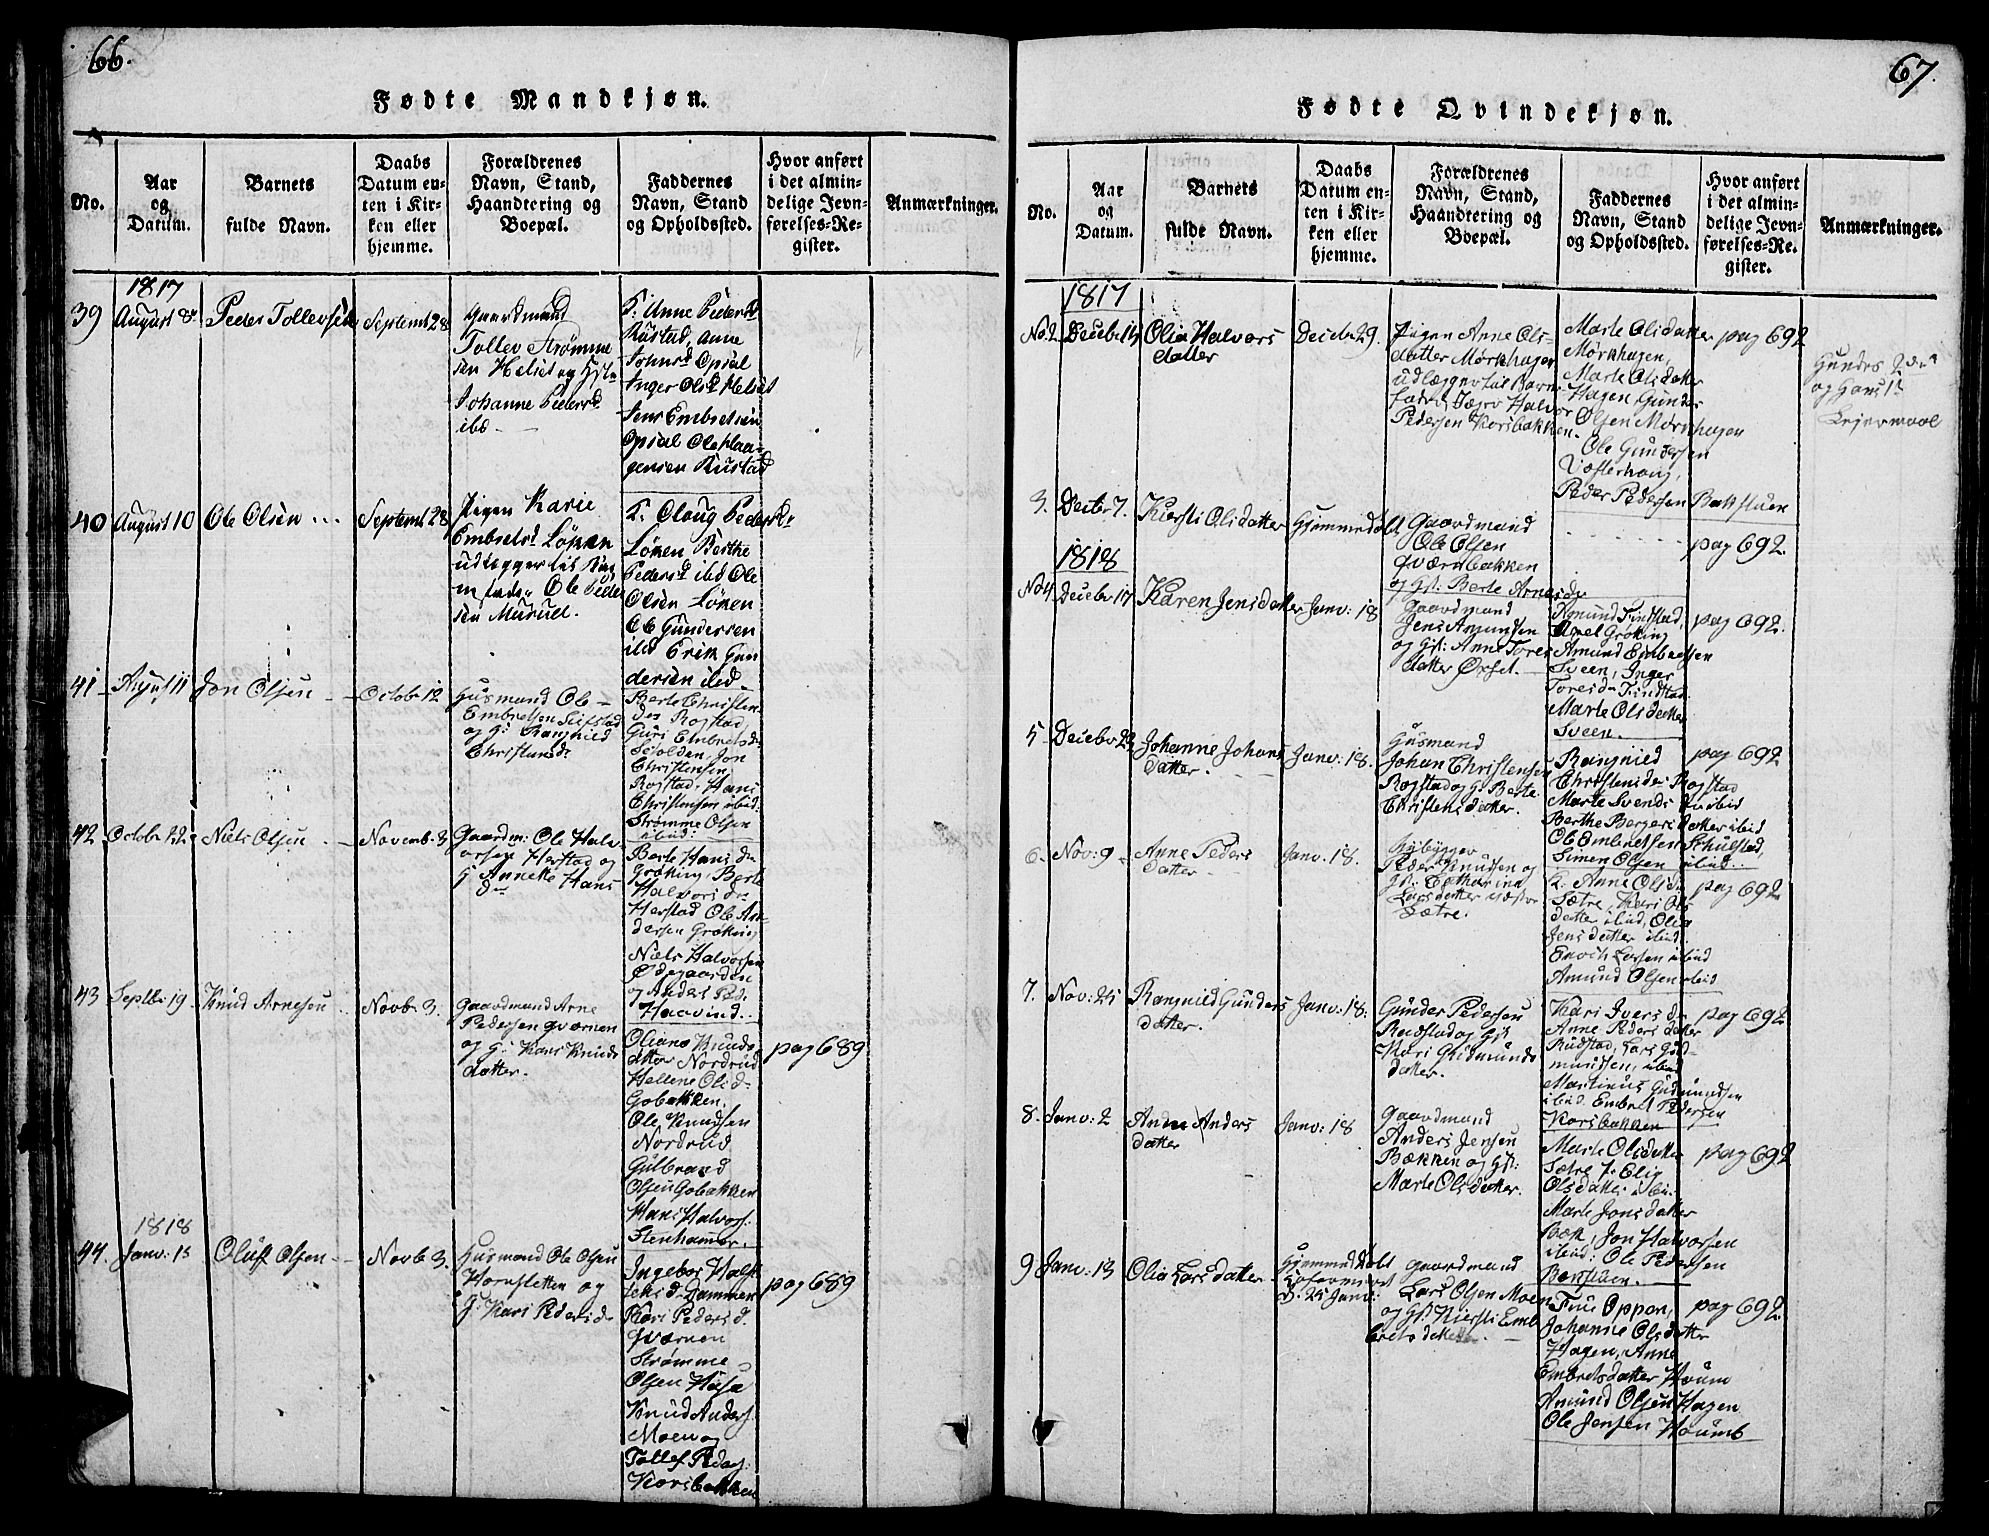 66.
Fødte Mandkjøn.
No.
Aar
og
Datum.
Barnets
fulde Navn.
Daabs
Datum en-
ten i Kir-
ken eller
hjemme.
Forældrenes
Navn, Stand,
Haandtering og
Boepæl.
Faddernes
Navn, Stand
og Opholdssted.
Hvor anført
i det almin-
delige Jevn-
førelses-Re-
gister.
Anmærkninger.
1817
39
August 8
Peder Tollevsen
Septemt 28
Gaardmand
Tollev Strømme
sen Helset og Hst
Johanne Peders d
ibd
F: Anne Peders d
Rustad, Anne
Johns d Opsal
Inger Ols d Helset
Jens Embretsen
Opsal Ole Haa-
gensen Rustad
40
August 10
Ole Olsen
Septemt 28
Pigen Karie
Embrets d Löken
udlegger til Bar
n fader Ole Peder
sen Murud.
F. Oloug Peders d
Löken Berthe
Peders d ibd Ole
Olsen Löken
Ole Gundersen
ibd Erik Gun
dersen ibd
41
August 11
Jon Olsen
Octobr 12
Husmand Ole
Embretsen
og H: Rangnild
Christensd
Berte Christen-
des Rogstad,
Guri Embrets d
Scholden, Jon
Christensen
Rogstad, Hans
Christensen ibid.
Strømme Olsen
ibid:
42
October 22
Niels Olsen
Novemb. 3
Gaardm: Ole Halv
orsen Herstad og
H Anneke Hans
dr
Berte Hans d
Grøking, Berte
Halvors d
Herstad Ole An
dersen Grøking
Niels Halvorsen
Ødegaarden
og Anders Ped.
Haavind.
43
Septbr 19
Knud Arnesen
Novbr 3.
Gaardmand Arne
Pedersen Qværnen
og H: Kari Knuds
datter.
Oliana Knuds
datter Nordrud
Hellene Ols d
Gobakken.
Ole Knudsen
Nordrud
Gulbrand
Olsen Gobakken
Hans Halvors.
Stenhamer.
pag 689
1818
44.
Janv: 13
Oluf Olsen
Novb 3.
Husmand Ole Olsen
Hornsletten og
H: Kari Peders d
Ingebor Half
Dammen
Kari Peders d.
Qværnen
Strømme
Olsen Husa
Knud Anders.
Moen og
Tollef Peders.
Korsbakken
pag 689
67.
Fødte Qvindekjøn.
No.
Aar
og
Datum.
Barnets
fulde Navn.
Daabs
Datum en-
ten i Kir-
ken eller
hjemme.
Forældrenes
Navn, Stand,
Haandtering og
Boepæl.
Faddernes
Navn, Stand
og Opholdssted.
Hvor anført
i det almin-
delige Jevn-
førelses-Re-
gister.
Anmærkninger.
1817
No 2
Decebr 14
Olia Halvors
datter
Decebr 29.
Pigen Anne Ols-
datter Mørkhagen
udlægger til Barne
fader Jægr Halvor
Pedersen Korsbakken.
Marte Olsdatter
Mørkhagen,
Marte Olsdatter
Hagen, Gunder
Olsen Mørkhagen
Ole Gundersen
Vesterhaug,
Peder Pedersen Bakstuen
pag 692
Hendes 2den
og Hans 1te
Lejermaal
3.
Decbr 7.
Kiersti Olsdatter
Hjemmedøbt
Gaardmand
Ole Olsen
Qværnbakken
og Hst: Berte Arnesdr
pag 692
1818
No 4
Decebr 17
Karen Jensdatter
Janv: 18
Gaardmand
Jens Amundsen
og Hst: Anne Tores
datter Ørset.
Amund Trindstad,
Axel Grøking
Amund Embretsen
Sveen, Inger
Toresdr Trindstad
Marte Olsdatter
Sveen.
pag 692.
5
Decebr 23
Johanne Johans
datter.
Janv: 18.
Husmand
Johan Christensen
Rogstad og H: Berte
Christensdatter.
Rangnild
Christensdr Rogstad
Marte Svendsdr ibid
Berthe Bergersdatter ibid
Ole Embretsen Schulstad,
Simen Olsen ibid.
pag 692
6.
Nov: 9
Anne Peders
datter
Janv: 18.
Nybygger
Peder Knudsen og
Hst: Catharina
Larsdatter
Sætre.
F. Anne Olsdr
Sætre, Kari Ols
datter ibid, Olia
Jensdatter ibid.
Enoch Larsen ibid
Amund Olsen ibid
pag 692
7.
Nov: 25
Rangnild Gunders
datter.
Janv: 18.
Gunder Pedersen
Rudstad og Hst
Mari Gudmunds
datter.
Kari Iversdr
Anne Pedersdatter
Rudstad, Lars Gud-
mundsen, ibid
Martinus Gudmundsen
ibid. Embret Pedersen
Korsbakken
pag 692
8.
Janv: 2
Anne Anders
datter
Janv: 18
Gaardmand
Anders Jensen
Bækken og Hst:
Marte Olsdatter.
Marte Olsdatter
Sætre P. Elie
Olsdatter ibid.
Marte Jonsdatter
Bæk, Jon Halvorsen
ibid: Ole Pedersen
pag 692
9
Janv: 13
Olia Larsdatter
Hjemmedøbt
Conformeret
d. 25 Janv:
Gaardmand
Lars Olsen Moen
og Hst: Kiersti Emb
bretsdatter.
Fru Oppen,
Johanne Olsdatter
Hagen, Anne
Embretsdatter Houm
Amund Olsen Hagen
Ole Jensen Houmb
pag 692